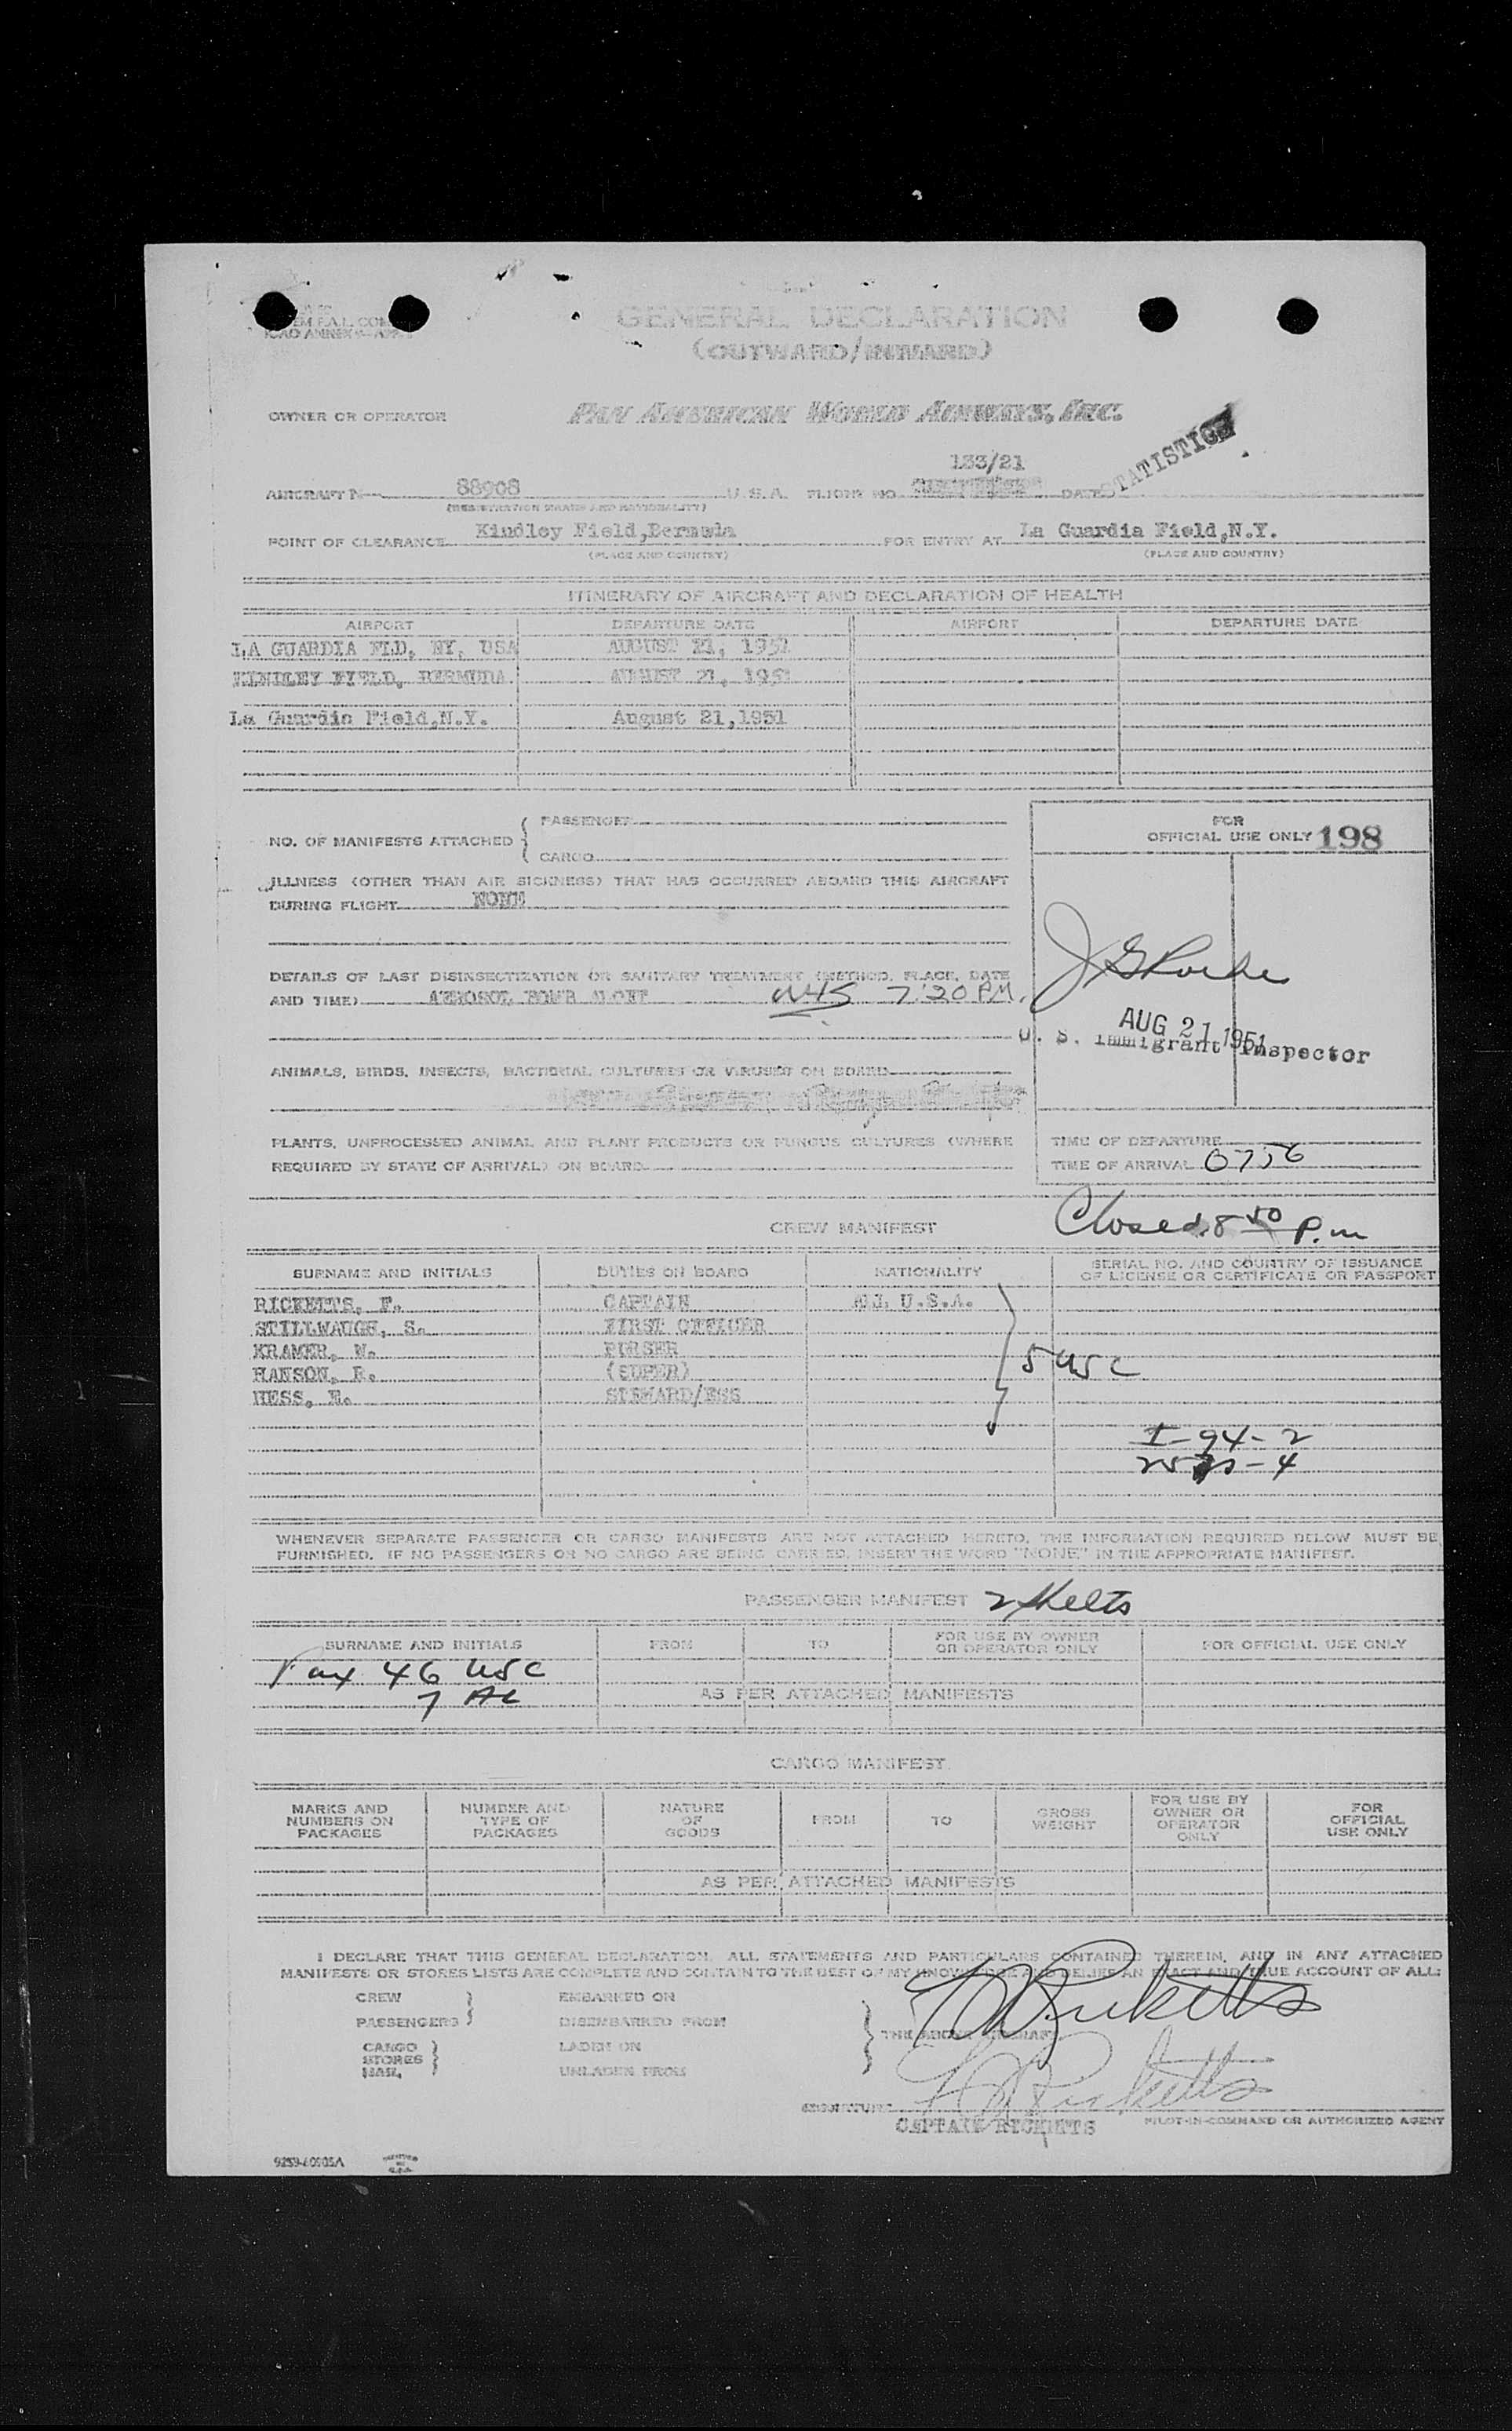 ICAO ANNEX 9-APP.
GENERAL DECLARATION
(OUTWARD/INWARD)
OWNER OR OPERATOR PAN AMERICAN WORLD AIRWAYS, INC.
133/21
STATISTICS
AIRCRAFT N- 88908 U.S.A. FLIGHT NO. DATE
(REGISTRATION MARKS AND NATIONALITY)
POINT OF CLEARANCE Kindley Field,Bermuda FOR ENTRY AT La Guardia Field,N.Y.
(PLACE AND COUNTRY) (PLACE AND COUNTRY)
ITINERARY OF AIRCRAFT AND DECLARATION OF HEALTH
AIRPORT DEPARTURE DATE AIRPORT DEPARTURE DATE
LA GUARDIA FLD, NY, USA AUGUST 21, 1951
KINDLEY FIELD, BERMUDA AUGUST 21, 1951
La Guardia Field,N.Y. August 21,1951
NO. OF MANIFESTS ATTACHED { PASSENGER
CARGO
FOR
OFFICIAL USE ONLY 198
ILLNESS (OTHER THAN AIR SICKNESS) THAT HAS OCCURRED ABOARD THIS AIRCRAFT
DURING FLIGHT NONE
DETAILS OF LAST DISINSECTIZATION OR SANITARY TREATMENT (METHOD, PLACE, DATE
AND TIME) AEROSOL BOMB ALOFT 7:20 PM.
AUG 21 1951
U. S. Immigrant Inspector
ANIMALS, BIRDS, INSECTS, BACTERIAL CULTURES OR VIRUSES ON BOARD
PLANTS, UNPROCESSED ANIMAL AND PLANT PRODUCTS OR FUNGUS CULTURES (WHERE
REQUIRED BY STATE OF ARRIVAL) ON BOARD
TIME OF DEPARTURE
TIME OF ARRIVAL 0756
Closed 8 50 P.m
CREW MANIFEST
SURNAME AND INITIALS DUTIES ON BOARD NATIONALITY SERIAL NO. AND COUNTRY OF ISSUANCE
OF LICENSE OR CERTIFICATE OR PASSPORT
RICKETTS, F. CAPTAIN ALL U.S.A.
STILLWAUGH, S. FIRST OFFICER
KRAMER, N. PURSER
HANSON, R. (SUPER) 5 USC
HESS, E. STEWARD/ESS
I-94-2
WHENEVER SEPARATE PASSENGER OR CARGO MANIFESTS ARE NOT ATTACHED HERETO, THE INFORMATION REQUIRED BELOW MUST BE
FURNISHED. IF NO PASSENGERS OR NO CARGO ARE BEING CARRIED, INSERT THE WORD "NONE" IN THE APPROPRIATE MANIFEST.
PASSENGER MANIFEST 2 Shelts
SURNAME AND INITIALS FROM TO FOR USE BY OWNER
OR OPERATOR ONLY FOR OFFICIAL USE ONLY
Pax 46 USC
7 AL
AS PER ATTACHED MANIFESTS
CARGO MANIFEST
MARKS AND
NUMBERS ON
PACKAGES NUMBER AND
TYPE OF
PACKAGES NATURE
OF
GOODS FROM TO GROSS
WEIGHT FOR USE BY
OWNER OR
OPERATOR
ONLY FOR
OFFICIAL
USE ONLY
AS PER ATTACHED MANIFESTS
I DECLARE THAT THIS GENERAL DECLARATION, ALL STATEMENTS AND PARTICULARS CONTAINED THEREIN, AND IN ANY ATTACHED
MANIFESTS OR STORES LISTS ARE COMPLETE AND CONTAIN TO THE BEST OF MY KNOWLEDGE AND BELIEF AN EXACT AND TRUE ACCOUNT OF ALL:
CREW EMBARKED ON
PASSENGERS DISEMBARKED FROM
THE ABOVE AIRCRAFT
CARGO LADEN ON
STORES
MAIL UNLADEN FROM
SIGNATURE
CAPTAIN RICKETTS PILOT-IN-COMMAND OR AUTHORIZED AGENT